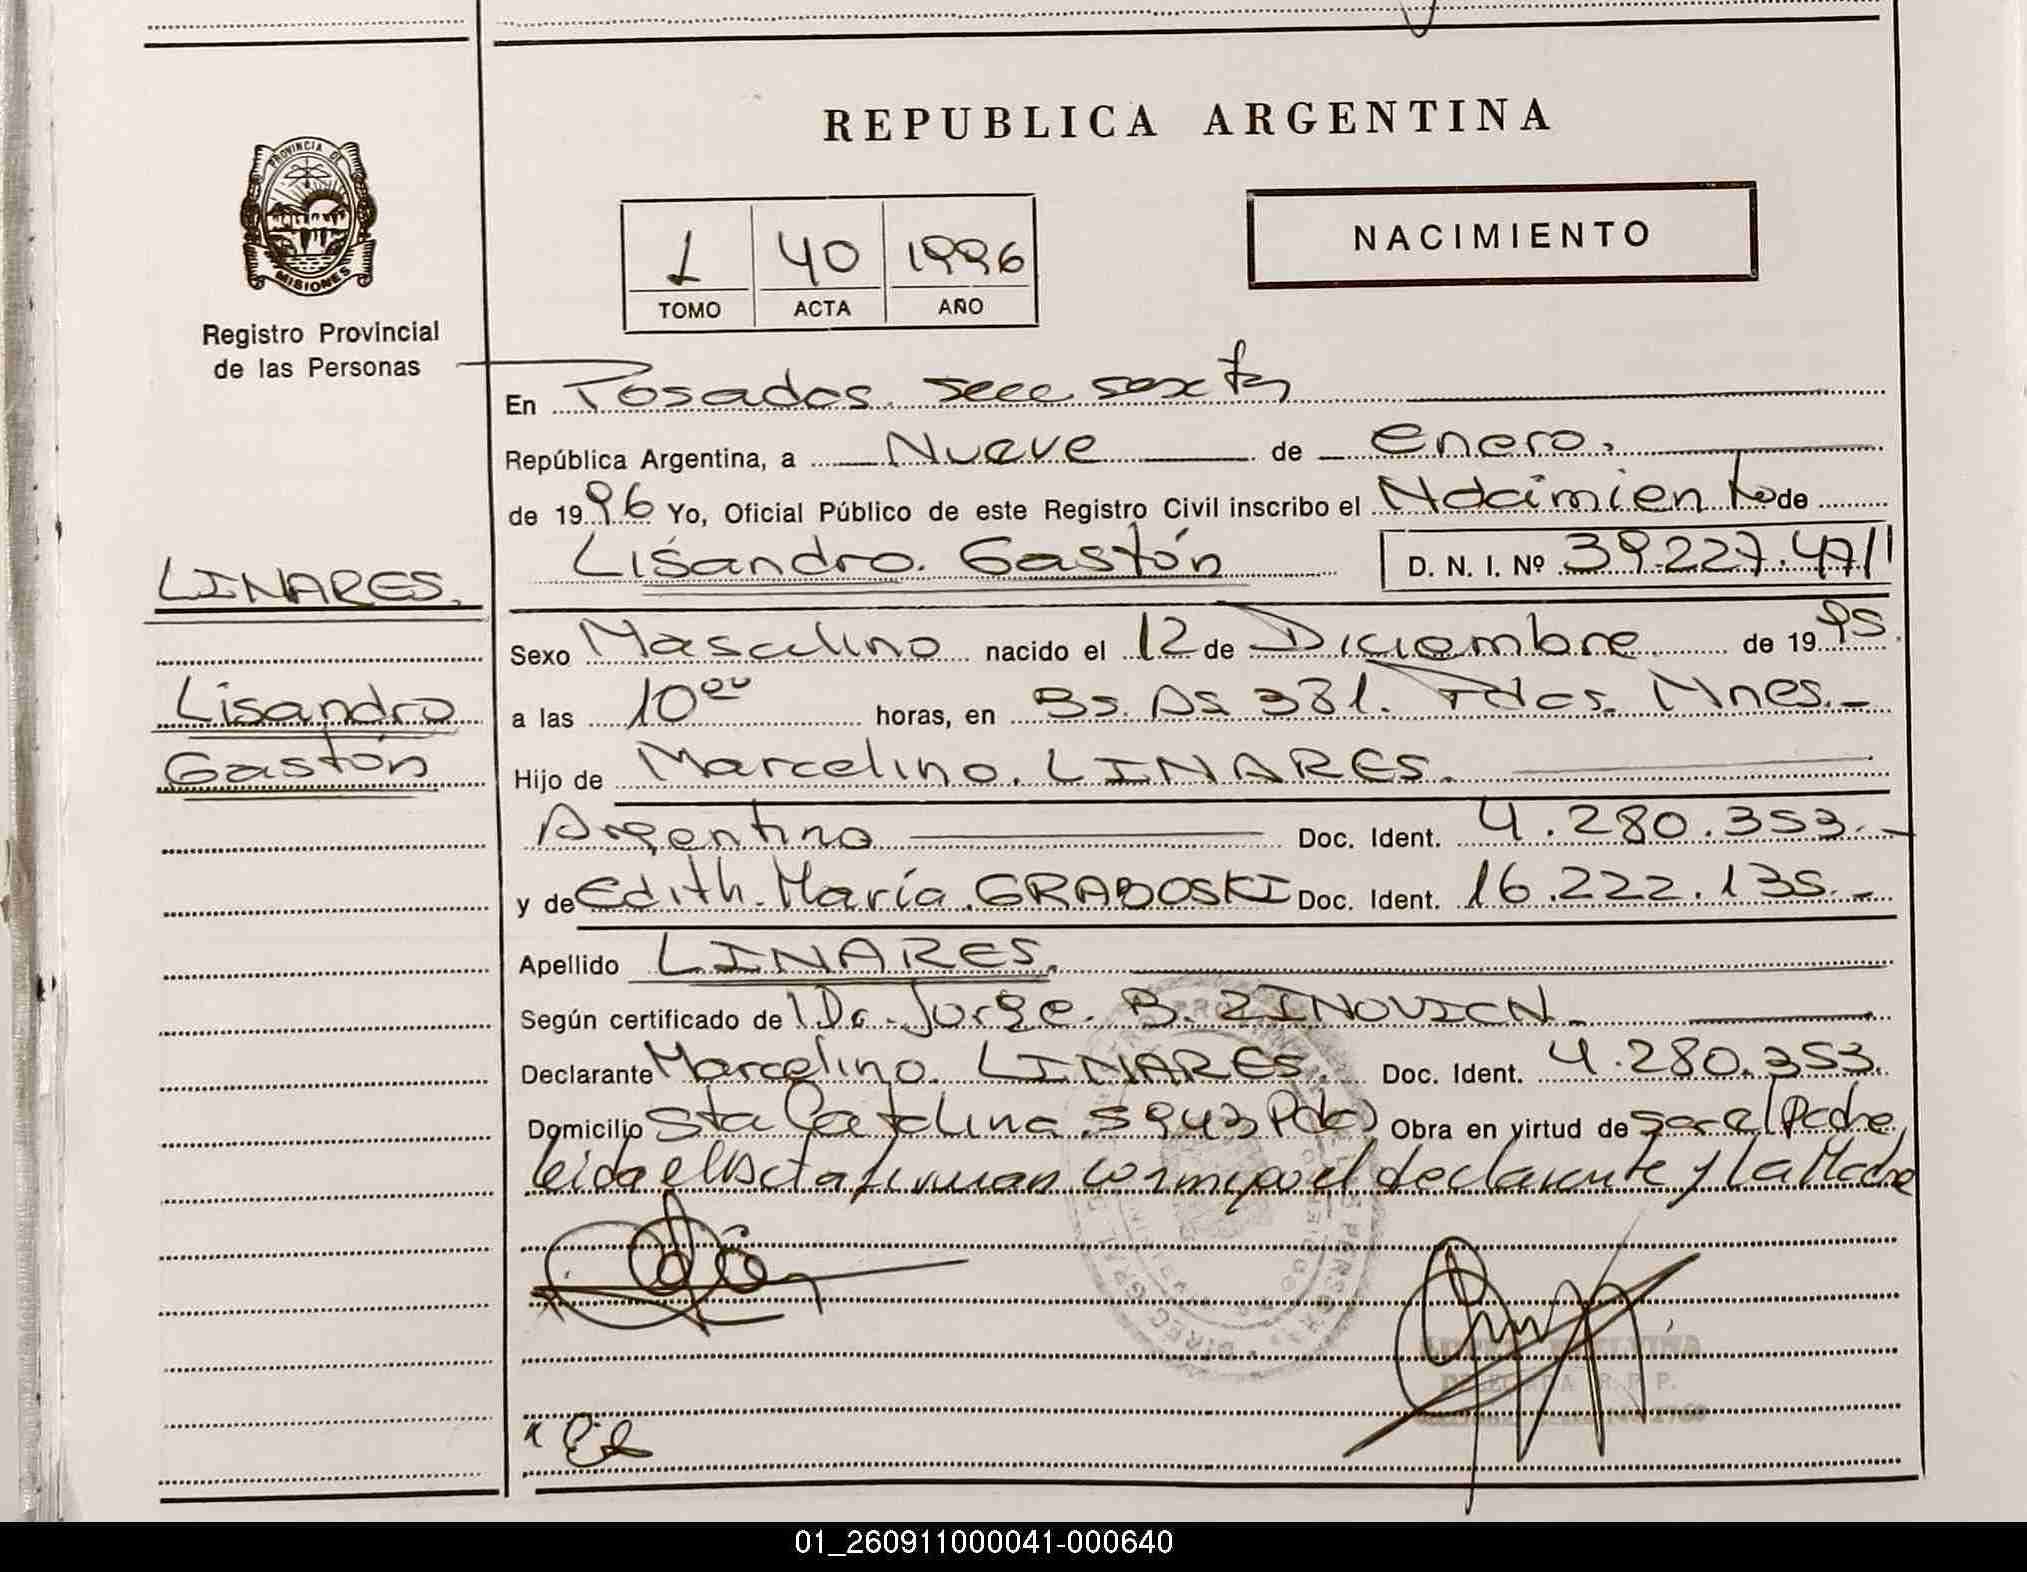 REPUBLICA ARGENTINA
PROVINCIA DE
MISIONES
Registro Provincial
de las Personas
1 40 1996
TOMO ACTA AÑO
NACIMIENTO
En Posadas. secc sexta
República Argentina, a Nueve de Enero.
de 1996 Yo, Oficial Público de este Registro Civil inscribo el Nacimiento de
Lisandro. Gastón D. N. I. Nº 39.227.471
LINARES.
Lisandro
Gastón
Sexo Masculino nacido el 12 de Diciembre de 1995.
a las 10 00 horas, en Bs. As 331. Pdas. Mnes.-
Hijo de Marcelino. LINARES.
Argentino Doc. Ident. 4.280.353.-
y de Edith. María. GRABOSKI Doc. Ident. 16.222.135.-
Apellido LINARES.
Según certificado de Dr. Jorge. B. ZINOVICH
Declarante Marcelino LINARES. Doc. Ident. 4.280.353.
Domicilio Sta Catalina 5943 Pdas Obra en virtud de ser el Padre,
leída el Acta firman conmigo el declarante y la Madre
DIRECTORA R. P. P.
01_260911000041-000640